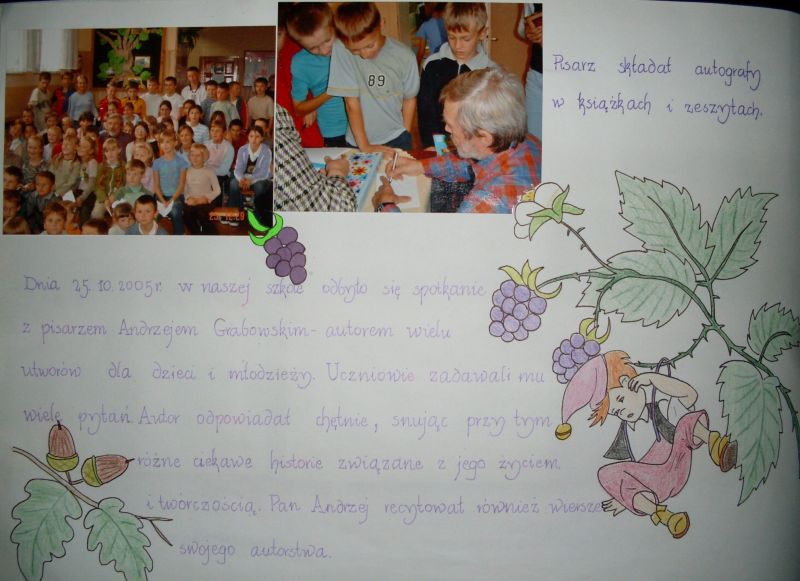 Pisarz składał autografy
w książkach i zeszytach.
89
Dnia 25.10.2005r. w naszej szkole odbyło się spotkanie
z pisarzem Andrzejem Grabowskim - autorem wielu
utworów dla dzieci i młodzieży. Uczniowie zadawali mu
wiele pytań. Autor odpowiadał chętnie, snując przy tym
różne ciekawe historie związane z jego życiem
i twórczością. Pan Andrzej recytował również wiersze
swojego autorstwa.